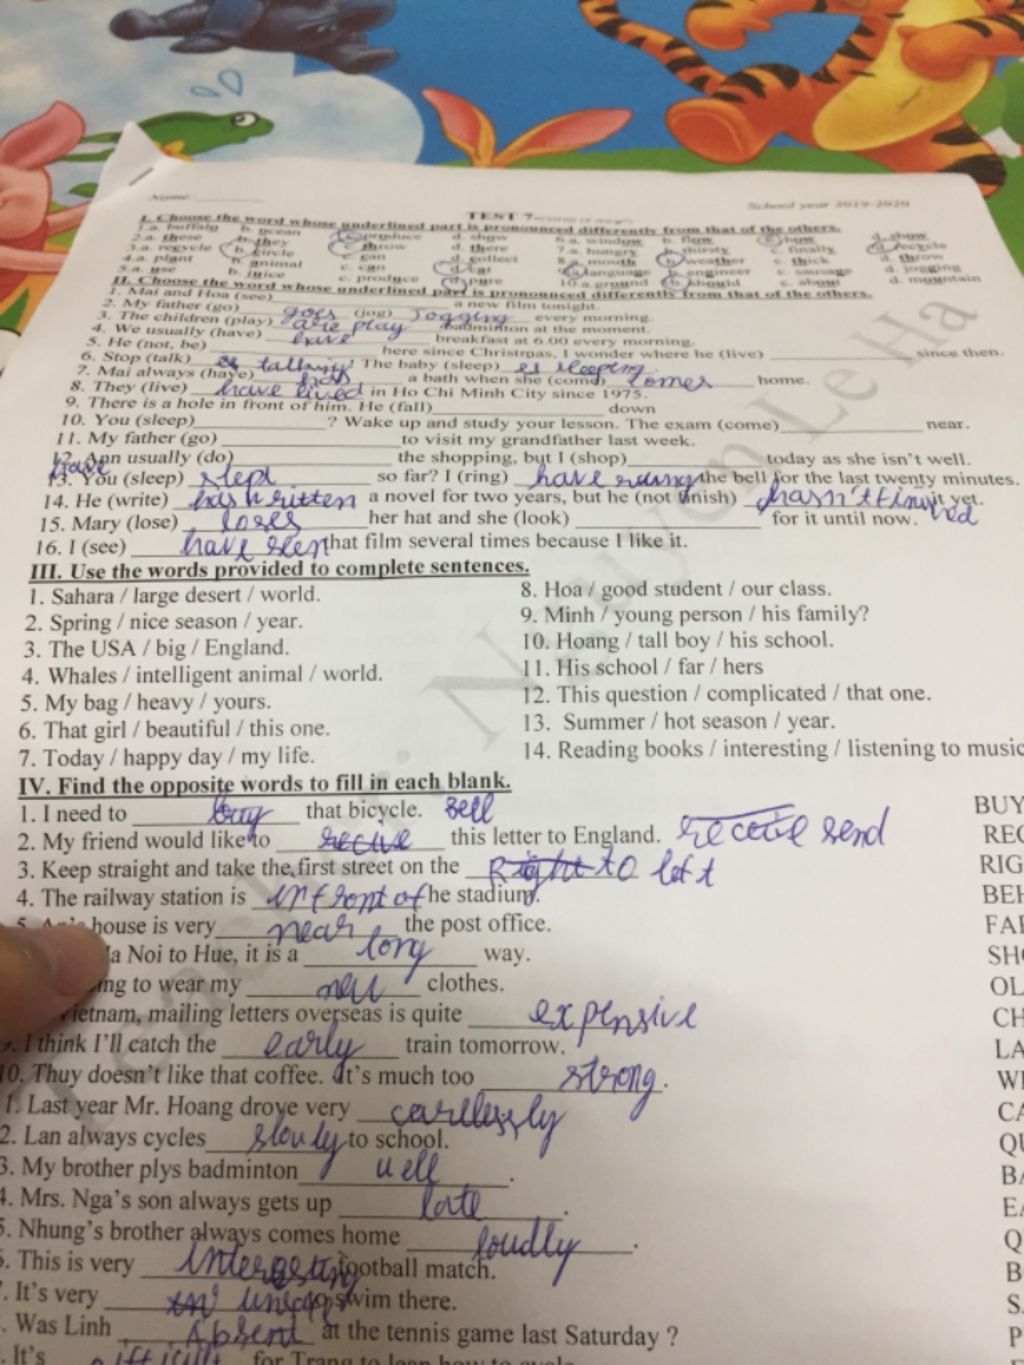 Name
TEST 7
School year 2019-2020
I. Choose the word whose underlined part is pronounced differently from that of the others.
1.a. buffalo b. ocean c. how d. show
2.a. these b. they c. throw d. there
3.a. recycle b. circle c. can d. collect
4.a. plant b. animal c. can d. eat
5.a. use b. juice c. produce d. pure
6.a. window b. flow c. how d. show
7.a. hungry b. thirsty c. finally d. recycle
8.a. mouth b. weather c. thick d. throw
9.a. language b. engineer c. sausage d. jogging
10.a. ground b. should c. about d. mountain
II. Choose the word whose underlined part is pronounced differently from that of the others.
1. Mai and Hoa (see) a new film tonight.
2. My father (go) goes (jog) Jogging every morning.
3. The children (play) are play badminton at the moment.
4. We usually (have) have breakfast at 6.00 every morning.
5. He (not, be) here since Christmas, I wonder where he (live) since then.
6. Stop (talk) talking! The baby (sleep) es sleeping.
7. Mai always (have) has a bath when she (come) comes home.
8. They (live) have lived in Ho Chi Minh City since 1975.
9. There is a hole in front of him. He (fall) down
10. You (sleep) ? Wake up and study your lesson. The exam (come) near.
11. My father (go) to visit my grandfather last week.
12. Ann usually (do) the shopping, but I (shop) today as she isn't well.
have
13. You (sleep) slept so far? I (ring) have rung the bell for the last twenty minutes.
14. He (write) has written a novel for two years, but he (not finish) hasn't finished it yet.
15. Mary (lose) loses her hat and she (look) for it until now.
16. I (see) have seen that film several times because I like it.
III. Use the words provided to complete sentences.
1. Sahara / large desert / world.
2. Spring / nice season / year.
3. The USA / big / England.
4. Whales / intelligent animal / world.
5. My bag / heavy / yours.
6. That girl / beautiful / this one.
7. Today / happy day / my life.
8. Hoa / good student / our class.
9. Minh / young person / his family?
10. Hoang / tall boy / his school.
11. His school / far / hers
12. This question / complicated / that one.
13. Summer / hot season / year.
14. Reading books / interesting / listening to music
IV. Find the opposite words to fill in each blank.
1. I need to buy that bicycle. sell BUY
2. My friend would like to recive this letter to England. receive send REC
3. Keep straight and take the first street on the Right to left RIG
4. The railway station is in front of he stadium. BEH
house is very near the post office. FAR
a Noi to Hue, it is a long way. SHO
ng to wear my new clothes. OL
ietnam, mailing letters overseas is quite expensive CH
I think I'll catch the early train tomorrow. LA
10. Thuy doesn't like that coffee. It's much too strong. WE
1. Last year Mr. Hoang drove very carllessly CA
2. Lan always cycles slowly to school. QU
3. My brother plys badminton well. BA
4. Mrs. Nga's son always gets up late. EA
5. Nhung's brother always comes home loudly. Q
6. This is very interesting football match. B
. It's very to swim there. S
. Was Linh Absent at the tennis game last Saturday ? P
. It's for Trang to lean how to cycle.
Nguyen Le Ha